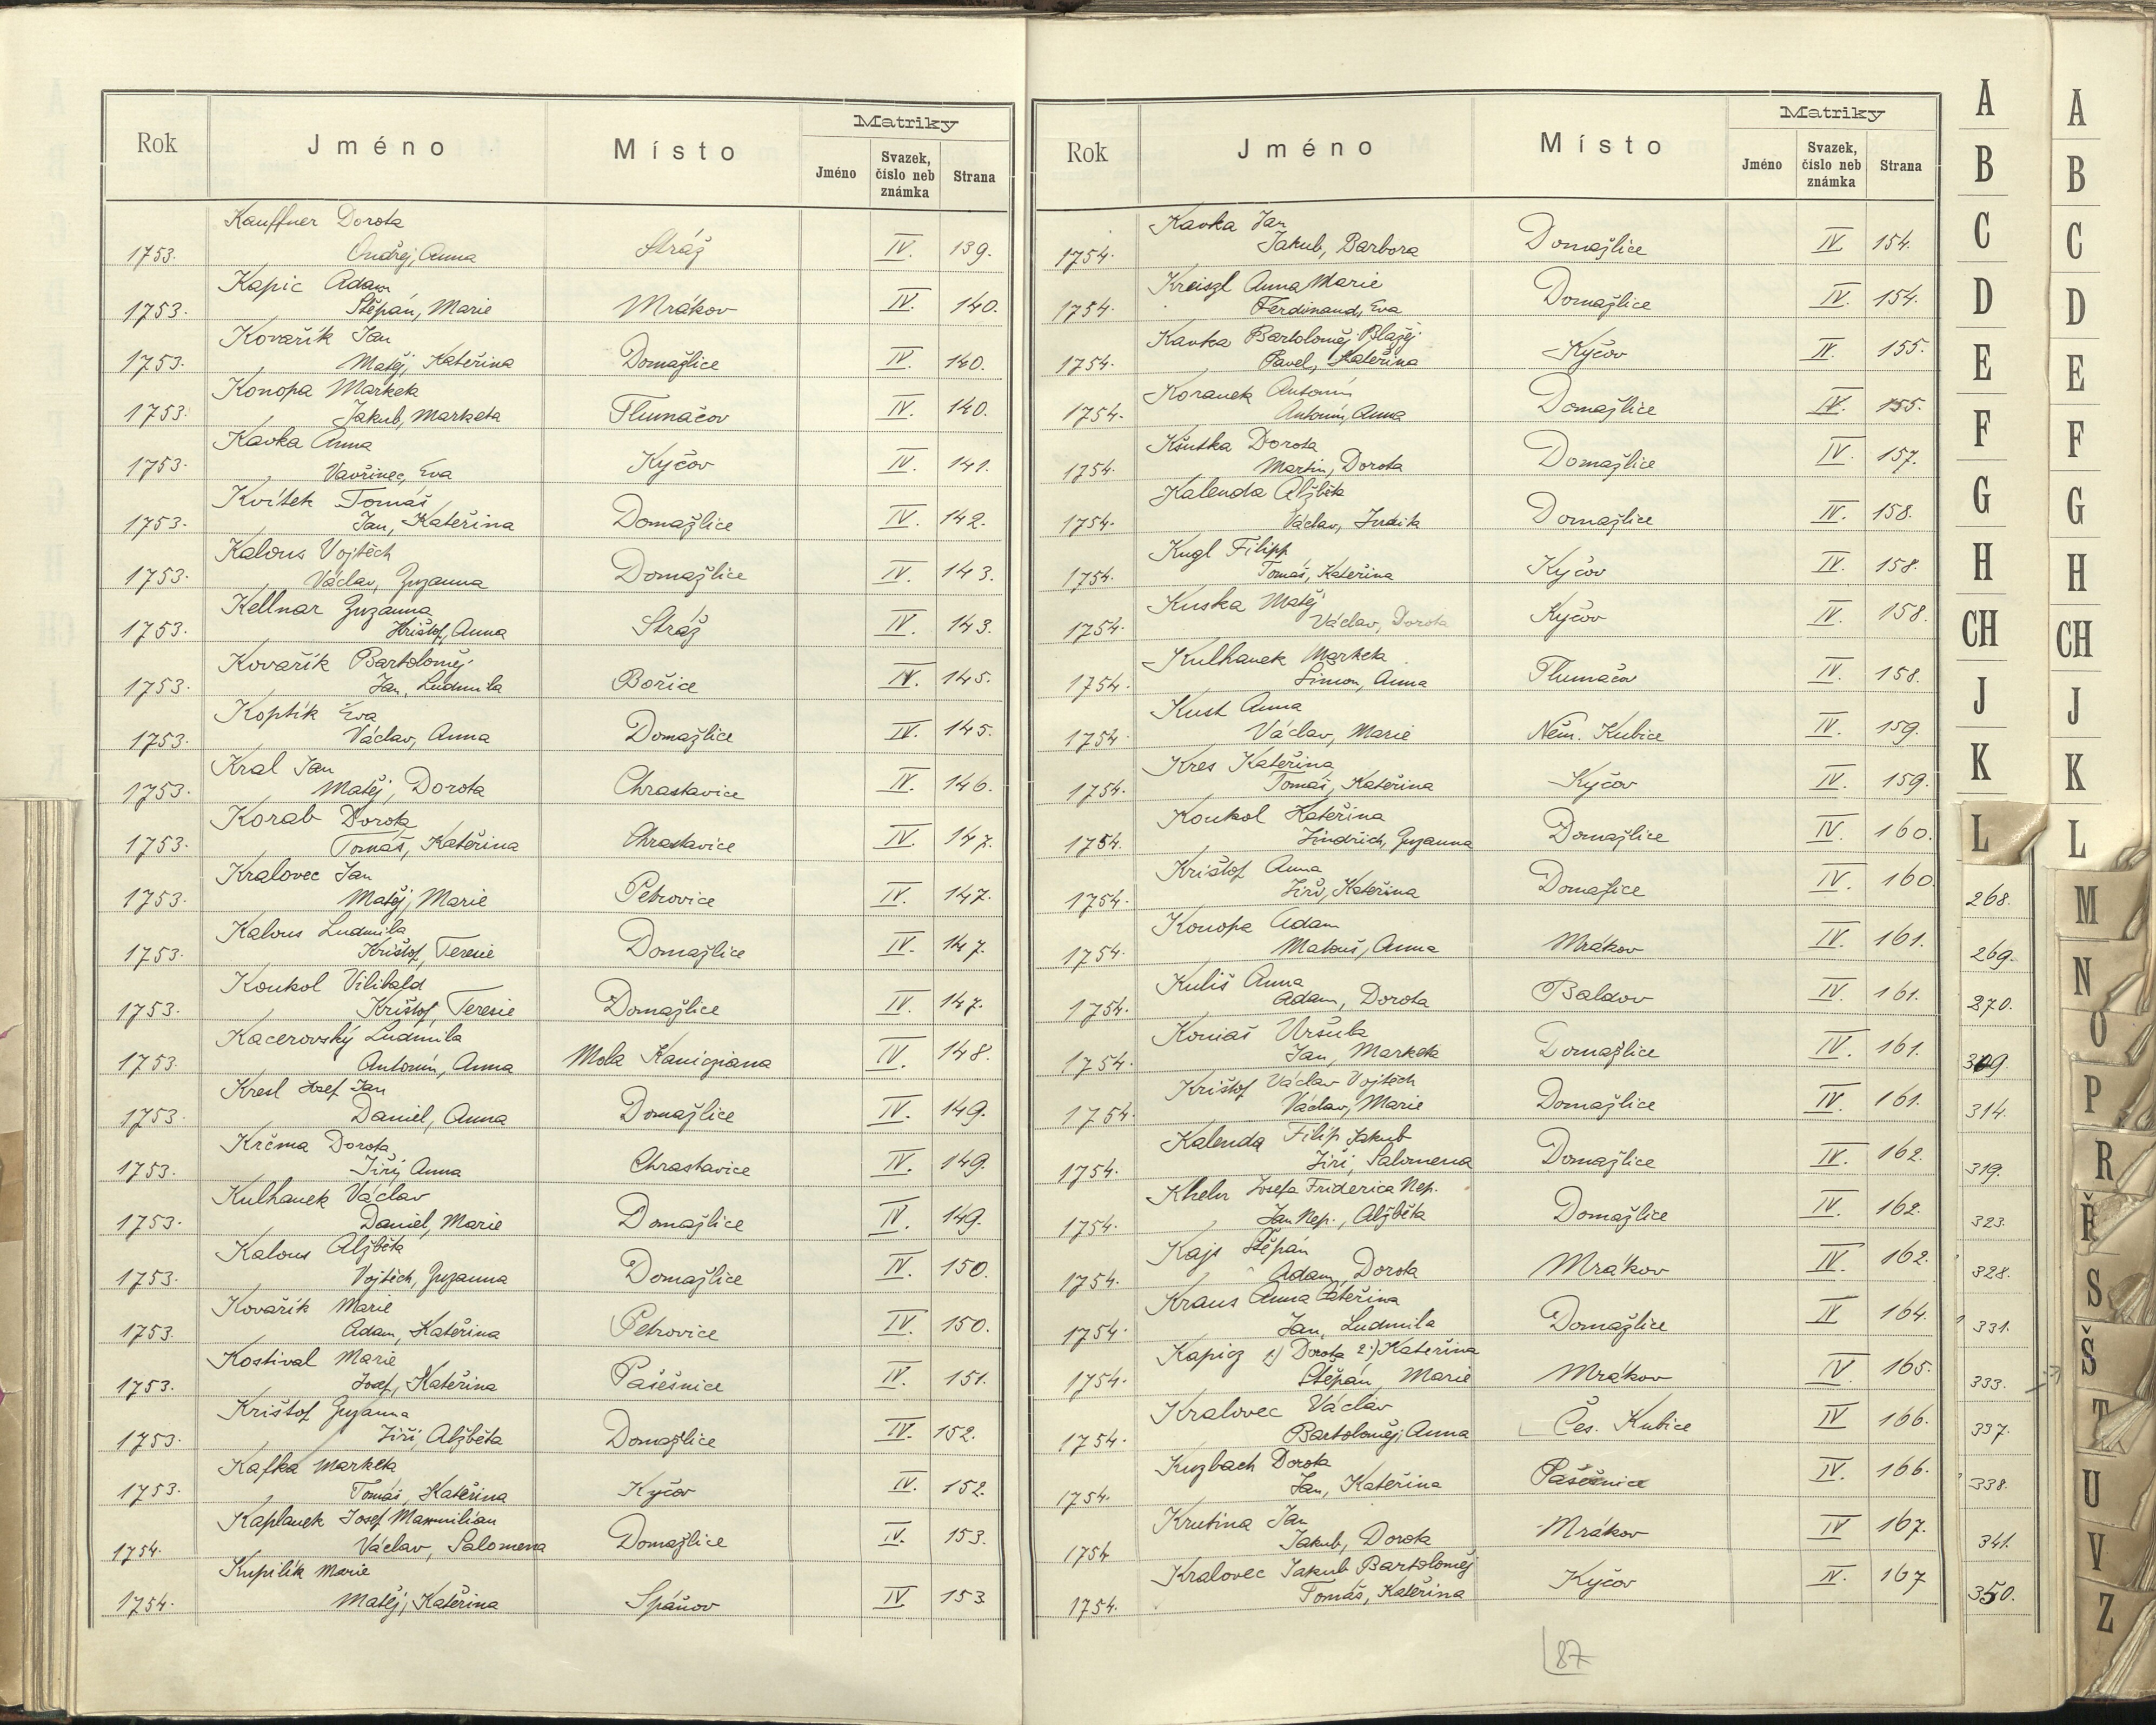 Rok Jméno Místo Matriky
Jméno Svazek, číslo neb známka Strana
Kauffner Dorota
1753. Ondřej, Anna Stráž IV. 139.
Kapic Adam
1753. Štěpán, Marie Mrákov IV. 140.
Kovařík Jan
1753. Matěj, Kateřina Domažlice IV. 140.
Konopa Marketa
1753. Jakub, Marketa Tlumačov IV. 140.
Kavka Anna
1753. Vavřinec, Eva Kyčov IV. 141.
Kvítek Tomáš
1753. Jan, Kateřina Domažlice IV. 142.
Kalous Vojtěch
1753. Václav, Zuzanna Domažlice IV. 143.
Kellnar Zuzanna
1753. Krištof, Anna Stráž IV. 143.
Kovařík Bartoloměj
1753. Jan, Ludmila Bořice IV. 145.
Koptík Eva
1753. Václav, Anna Domažlice IV. 145.
Kral Jan
1753. Matěj, Dorota Chrastavice IV. 146.
Korab Dorota
1753. Tomáš, Kateřina Chrastavice IV. 147.
Kralovec Jan
1753. Matěj, Marie Petrovice IV. 147.
Kalous Ludmila
1753. Krištof, Teresie Domažlice IV. 147.
Koukol Vilibald
1753. Krištof, Teresie Domažlice IV. 147.
Kacerovský Ludmila
1753. Antonín, Anna Mola Kanicziana IV. 148.
Kresl Josef Jan
1753. Daniel, Anna Domažlice IV. 149.
Krčma Dorota
1753. Jiří, Anna Chrastavice IV. 149.
Kulhanek Václav
1753. Daniel, Marie Domažlice IV. 149.
Kalous Alžběta
1753. Vojtěch, Zuzanna Domažlice IV. 150.
Kovařík Marie
1753. Adam, Kateřina Petrovice IV. 150.
Kostival Marie
1753. Josef, Kateřina Pašešnice IV. 151.
Krištof Zuzanna
1753. Jiří, Alžběta Domažlice IV. 152.
Kafka Marketa
1753. Tomáš, Kateřina Kyčov IV. 152.
Kaplanek Josef Maxmilian
1754. Václav, Salomena Domažlice IV. 153.
Kupilík Marie
1754. Matěj, Kateřina Spáňov IV. 153
Rok Jméno Místo Matriky
Jméno Svazek, číslo neb známka Strana
Kavka Jan
1754. Jakub, Barbora Domažlice IV. 154.
Kreiszl Anna Marie
1754. Ferdinand, Eva Domažlice IV. 154.
Kavka Bartoloměj Blažej
1754. Pavel, Kateřina Kyčov IV. 155.
Koranek Antonín
1754. Antonín, Anna Domažlice IV. 155.
Kšutka Dorota
1754. Martin, Dorota Domažlice IV. 157.
Kalenda Alžběta
1754. Václav, Judita Domažlice IV. 158.
Kugl Filipp
1754. Tomáš, Kateřina Kyčov IV. 158.
Kuska Matěj
1754. Václav, Dorota Kyčov IV. 158.
Kulhanek Marketa
1754. Šimon, Anna Tlumačov IV. 158.
Kust Anna
1754. Václav, Marie Něm. Kubice IV. 159.
Kres Kateřina
1754. Tomáš, Kateřina Kyčov IV. 159.
Koukol Kateřina
1754. Jindřich, Zuzanna Domažlice IV. 160.
Krištof Anna
1754. Jiří, Kateřina Domažlice IV. 160.
Konopa Adam
1754. Matouš, Anna Mrákov IV. 161.
Kuliš Anna
1754. Adam, Dorota Baldov IV. 161.
Koniaš Uršula
1754. Jan, Marketa Domažlice IV. 161.
Krištof Václav Vojtěch
1754. Václav, Marie Domažlice IV. 161.
Kalenda Filip Jakub
1754. Jiří, Salomena Domažlice IV. 162.
Kheln Josefa Friderica Nep.
1754. Jan Nep., Alžběta Domažlice IV. 162.
Kajs Štěpán
1754. Adam, Dorota Mrákov IV. 162.
Kraus Anna Kateřina
1754. Jan, Ludmila Domažlice IV 164.
Kapicz 1.) Dorota 2.) Kateřina
1754. Štěpán Marie Mrákov IV. 165.
Kralovec Václav
1754. Bartoloměj, Anna Čes. Kubice IV 166.
Kuzbach Dorota
1754. Jan, Kateřina Pašešnice IV. 166.
Krutina Jan
1754 Jakub, Dorota Mrákov IV 167.
Kralovec Jakub Bartoloměj
1754. Tomáš, Kateřina Kyčov IV. 167
87
A
B
C
D
E
F
G
H
CH
J
K
L
268.
269.
270.
309.
314.
319.
323.
328.
331.
333.
337.
338.
341.
350.
A
B
C
D
E
F
G
H
CH
J
K
L
M
N
O
P
R
Ř
S
Š
T
U
V
Z